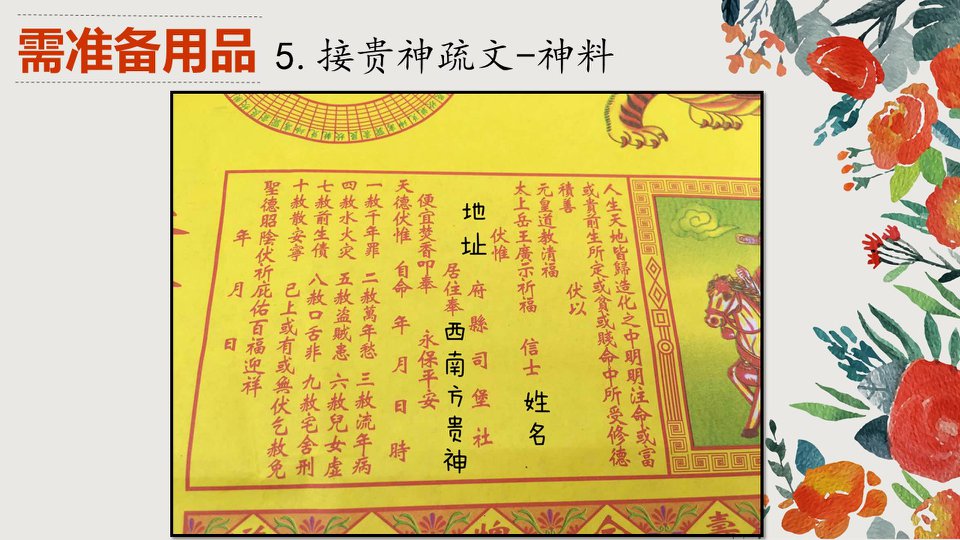 需准备用品
5.接贵神疏文-神料
人生天地皆歸造化之中明明注命或富
或貴前生所定或貧或賤命中所受修德
積善 伏以
元皇道教清福
太上岳王廣示祈福 信士 姓名
伏惟
地址 府縣司堡社
居住奉 西南方贵神
便宜焚香叩奉 永保平安
天德伏惟 自命 年 月 日 時
一赦千年罪 二赦萬年愁 三赦流年病
四赦水火灾 五赦盗賊恚 六赦兒女虚
七赦前生債 八赦口舌非 九赦宅舍刑
十赦散安寧 已上或有或無伏乞赦免
聖德昭陰伏祈庇佑百福迎祥
年 月 日